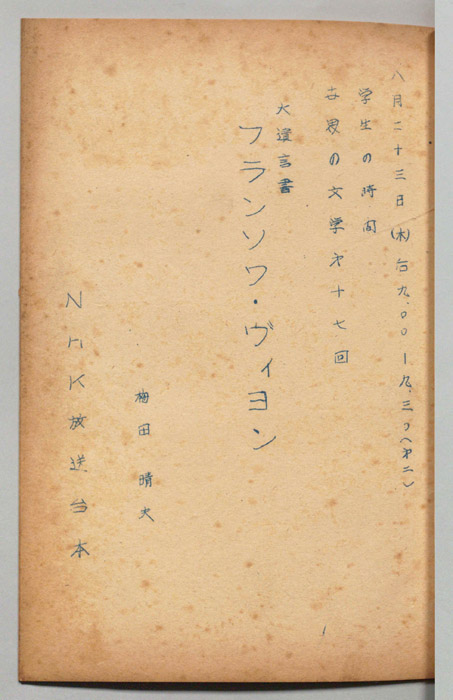 八月二十三日(木)后九.〇〇―九.三〇(第二)
学生の時間
世界の文学第十七回
大遺言書
フランソワ・ヴィヨン
梅田晴夫
NHK放送台本